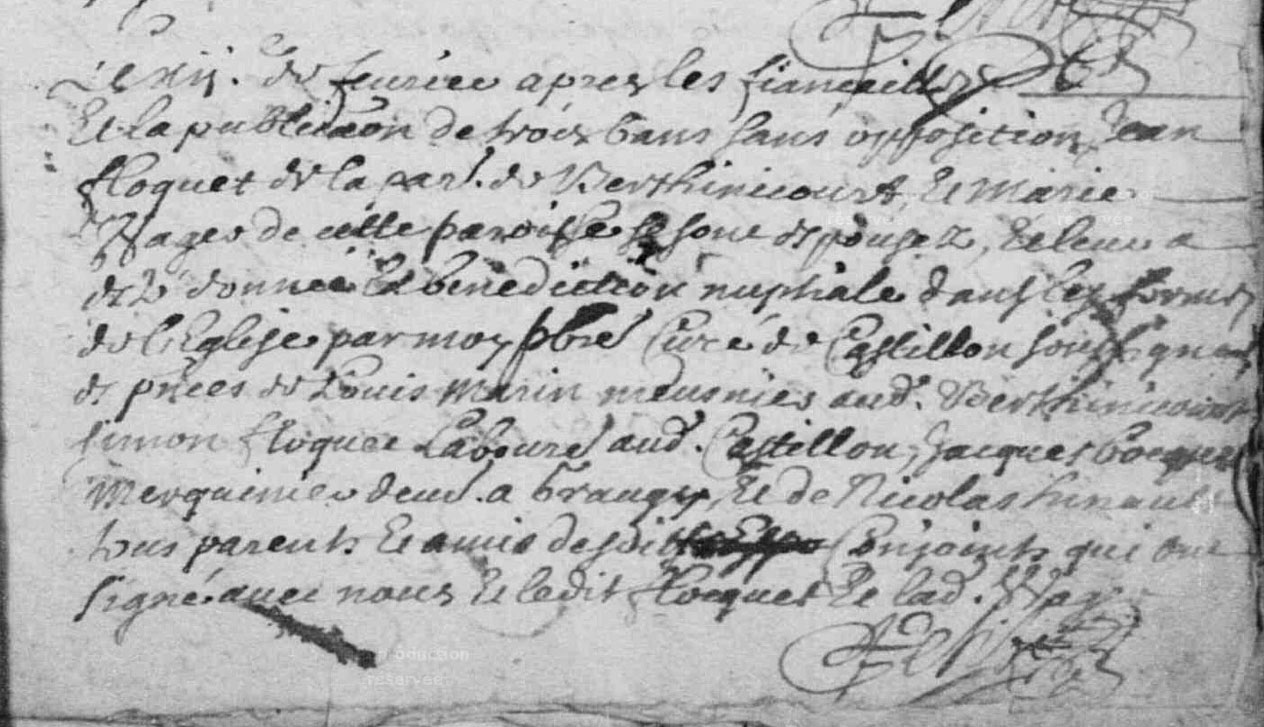 Le xij. de feurier apres les fiancailles
Et la publica͠on de trois bans sans opposition, Jean
floquet de la par. de Berthinicourt, Et Marie
de cette paroisse se sont espousez, Et leur a
esté donnée la benediction nuptiale dans les formes
de l'Eglise par moy pbre Curé de Castillon soussigné
es pñces de Louis Marin meusnier aud. Berthinicourt
Simon floquet Laboure aud. Castillon, Jacques
dem. a Et de Nicolas
tous parents Et amis desdits Conjoints qui ont
signé avec nous Et ledit flocquet Et lad.